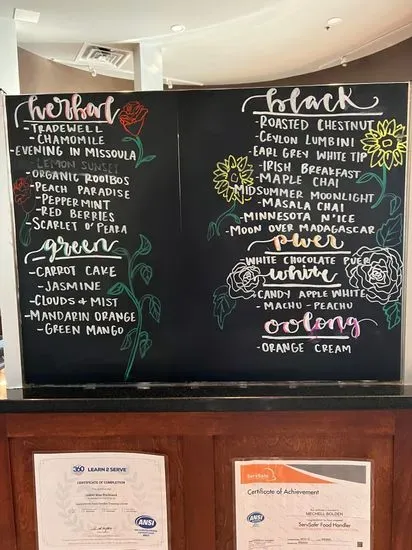 herbal
-TRADEWELL
-CHAMOMILE
-EVENING IN MISSOULA
LEMON SUNSET
-ORGANIC ROOIBOS
-PEACH PARADISE
-PEPPERMINT
-RED BERRIES
-SCARLET O'PEARA
green
-CARROT CAKE
-JASMINE
-CLOUDS & MIST
-MANDARIN ORANGE
-GREEN MANGO
black
-ROASTED CHESTNUT
-CEYLON LUMBINI
-EARL GREY WHITE TIP
-IRISH BREAKFAST
-MAPLE CHAI
-MIDSUMMER MOONLIGHT
-MASALA CHAI
-MINNESOTA N'ICE
-MOON OVER MADAGASCAR
puer
-WHITE CHOCOLATE PUER
white
-CANDY APPLE WHITE
-MACHU-PEACHU
oolong
-ORANGE CREAM
360 LEARN 2 SERVE
CERTIFICATE OF COMPLETION
ANSI
ServSafe
Certificate of Achievement
MECHELL BOLDEN
ServSafe Food Handler
ANSI